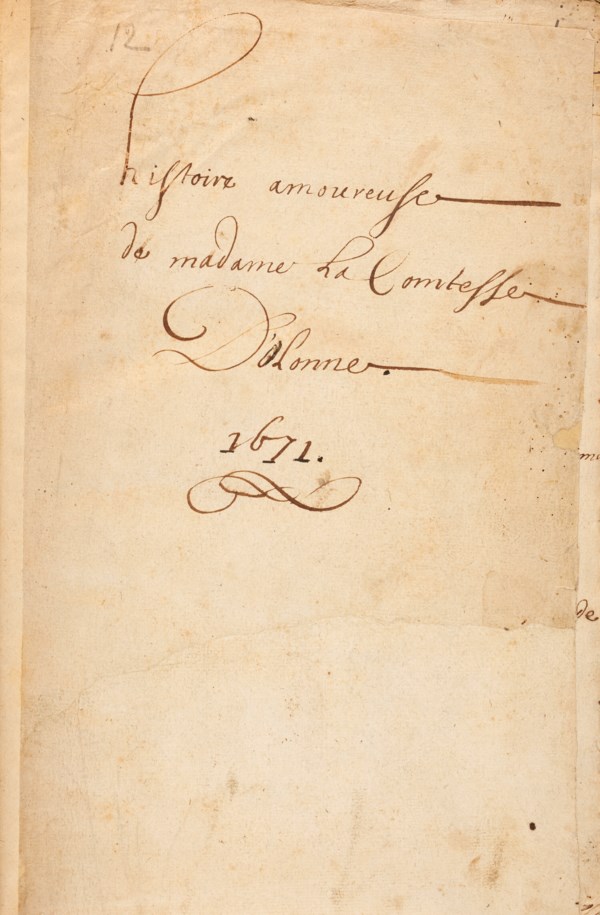 12
histoire amoureuse
de madame La Comtesse
D'olonne.
1671.
de